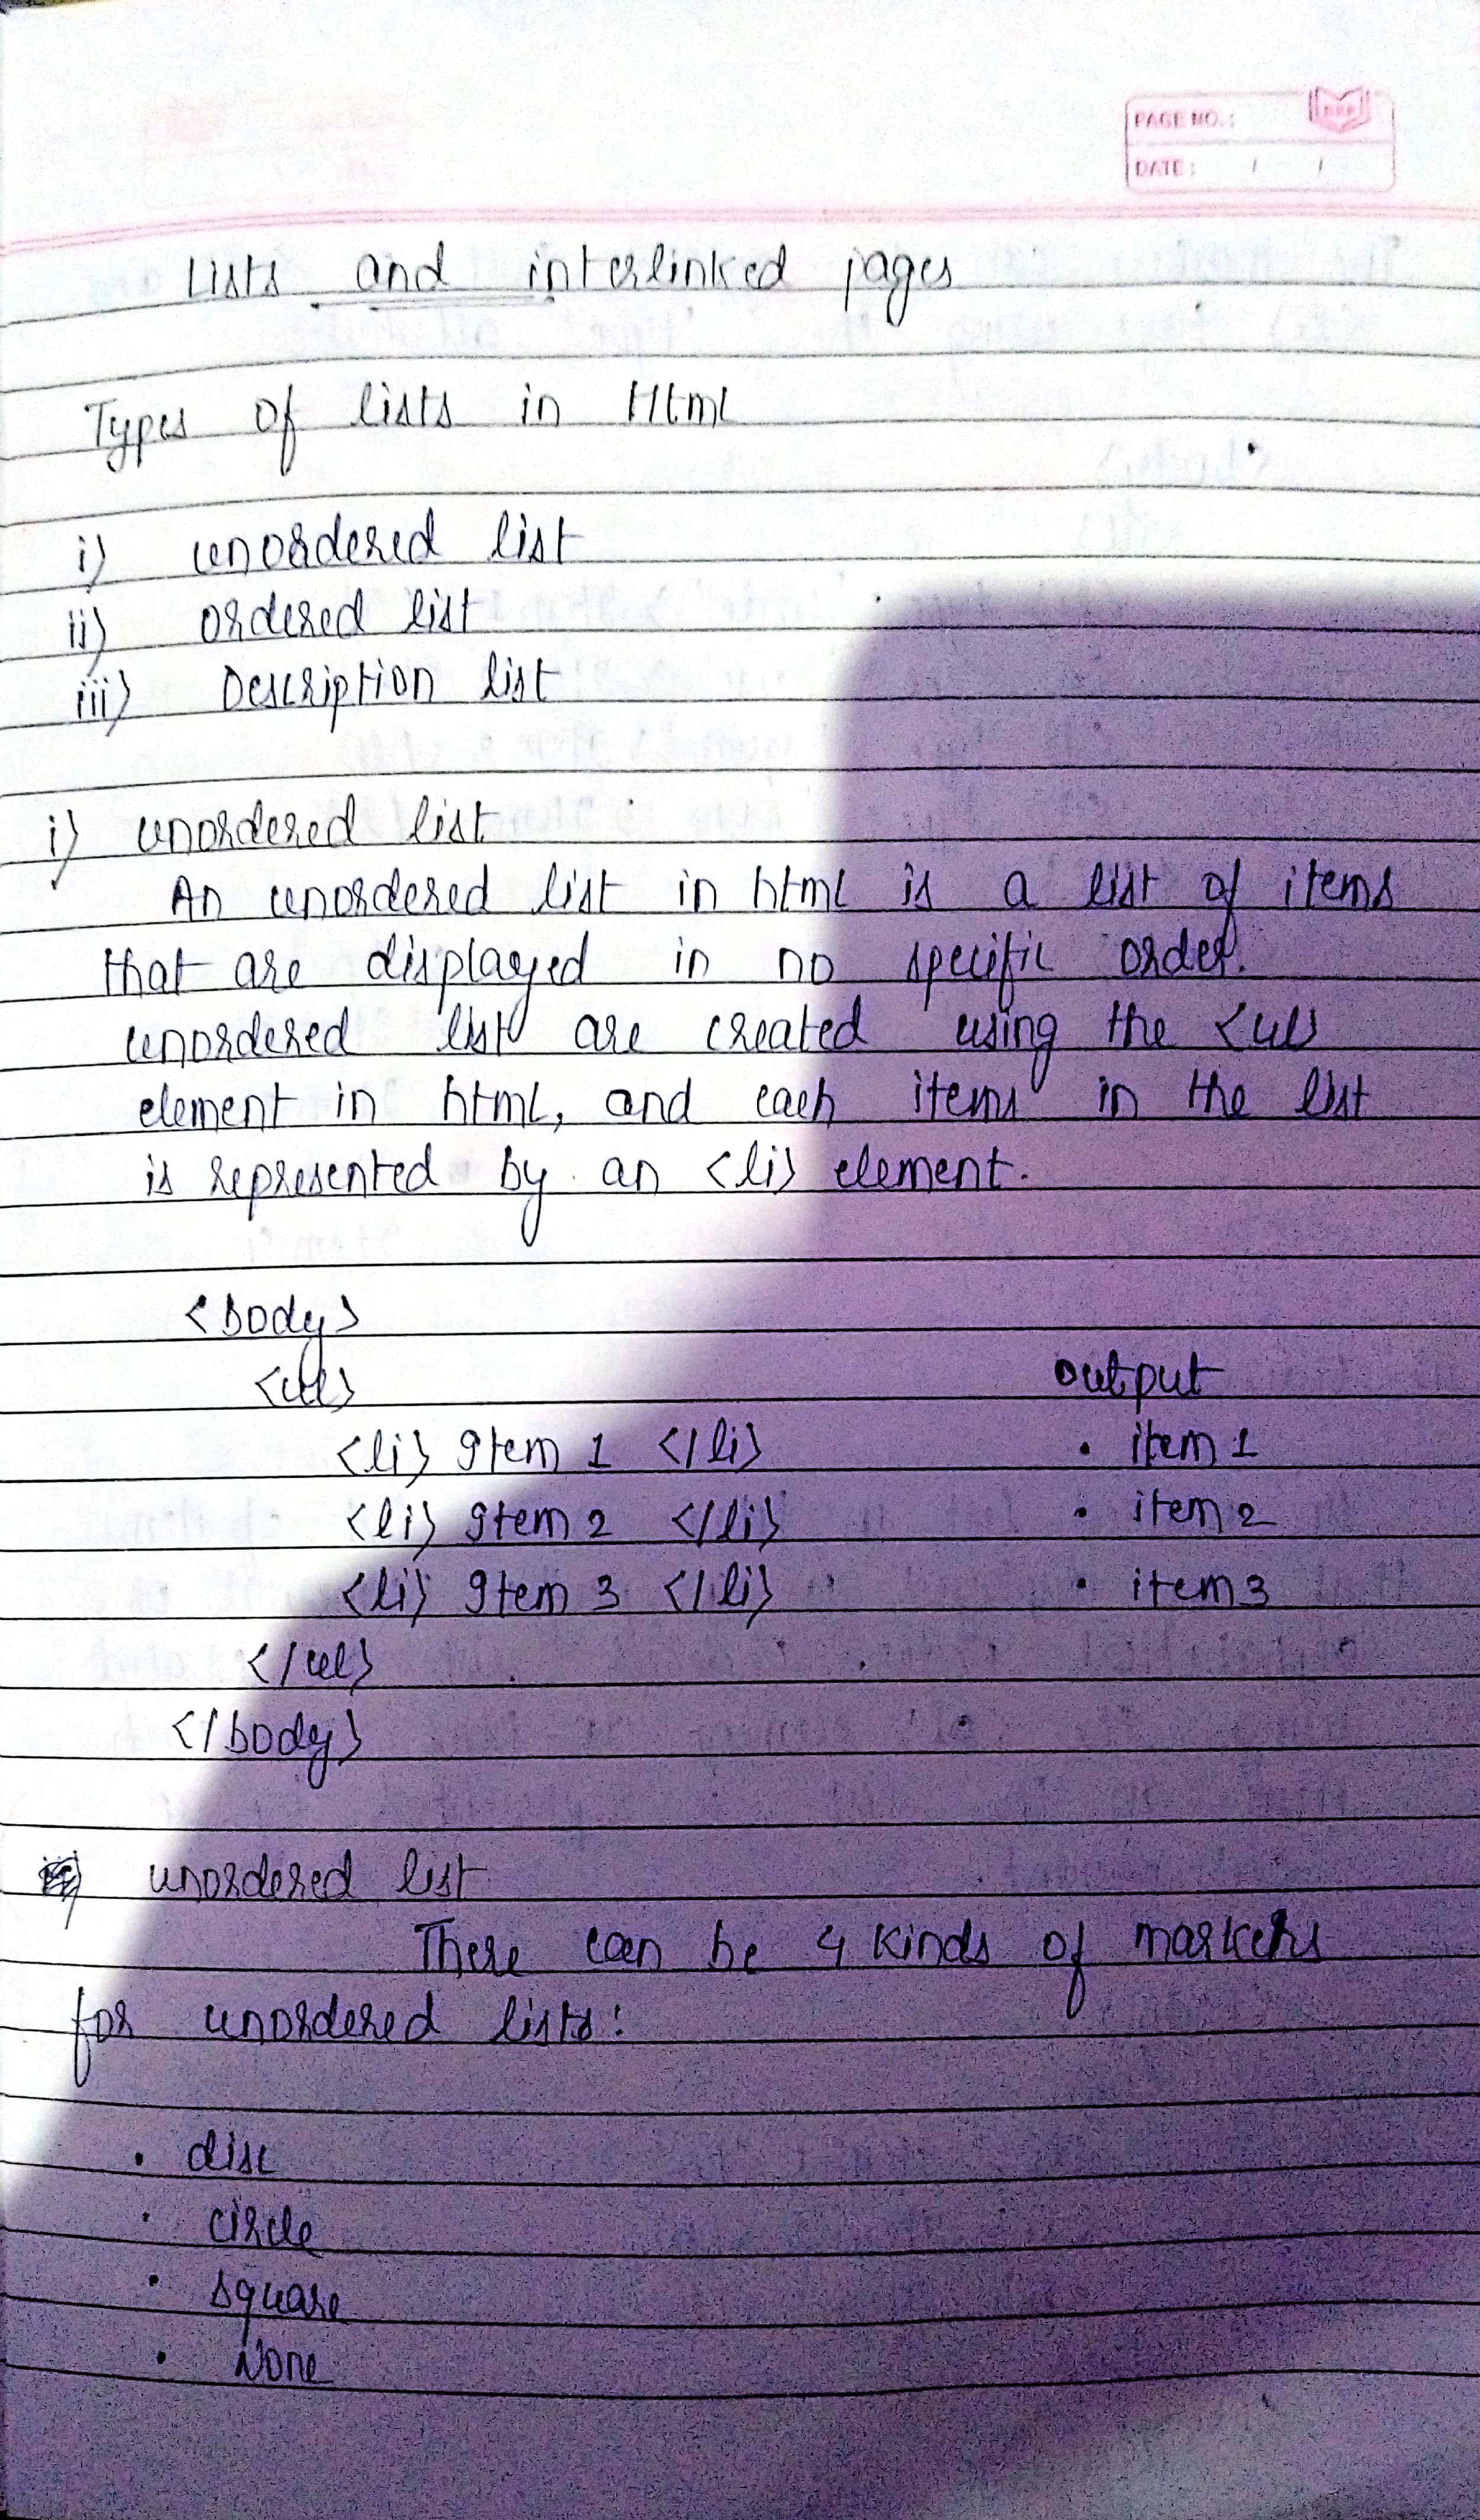 PAGE NO.:
DATE: / /
Lists and interlinked pages
Types of lists in Html
i) unordered list
ii) ordered list
iii) Description list
i) unordered list
An unordered list in html is a list of items
that are displayed in no specific order.
unordered list are created using the <ul>
element in html, and each items in the list
is represented by an <li> element.
<body>
<ul> output
<li> Item 1 </li> • item 1
<li> Item 2 </li> • item 2
<li> Item 3 </li> • item 3
</ul>
</body>
unordered list
There can be 4 kinds of markers
for unordered lists:
• disc
• circle
• square
• None